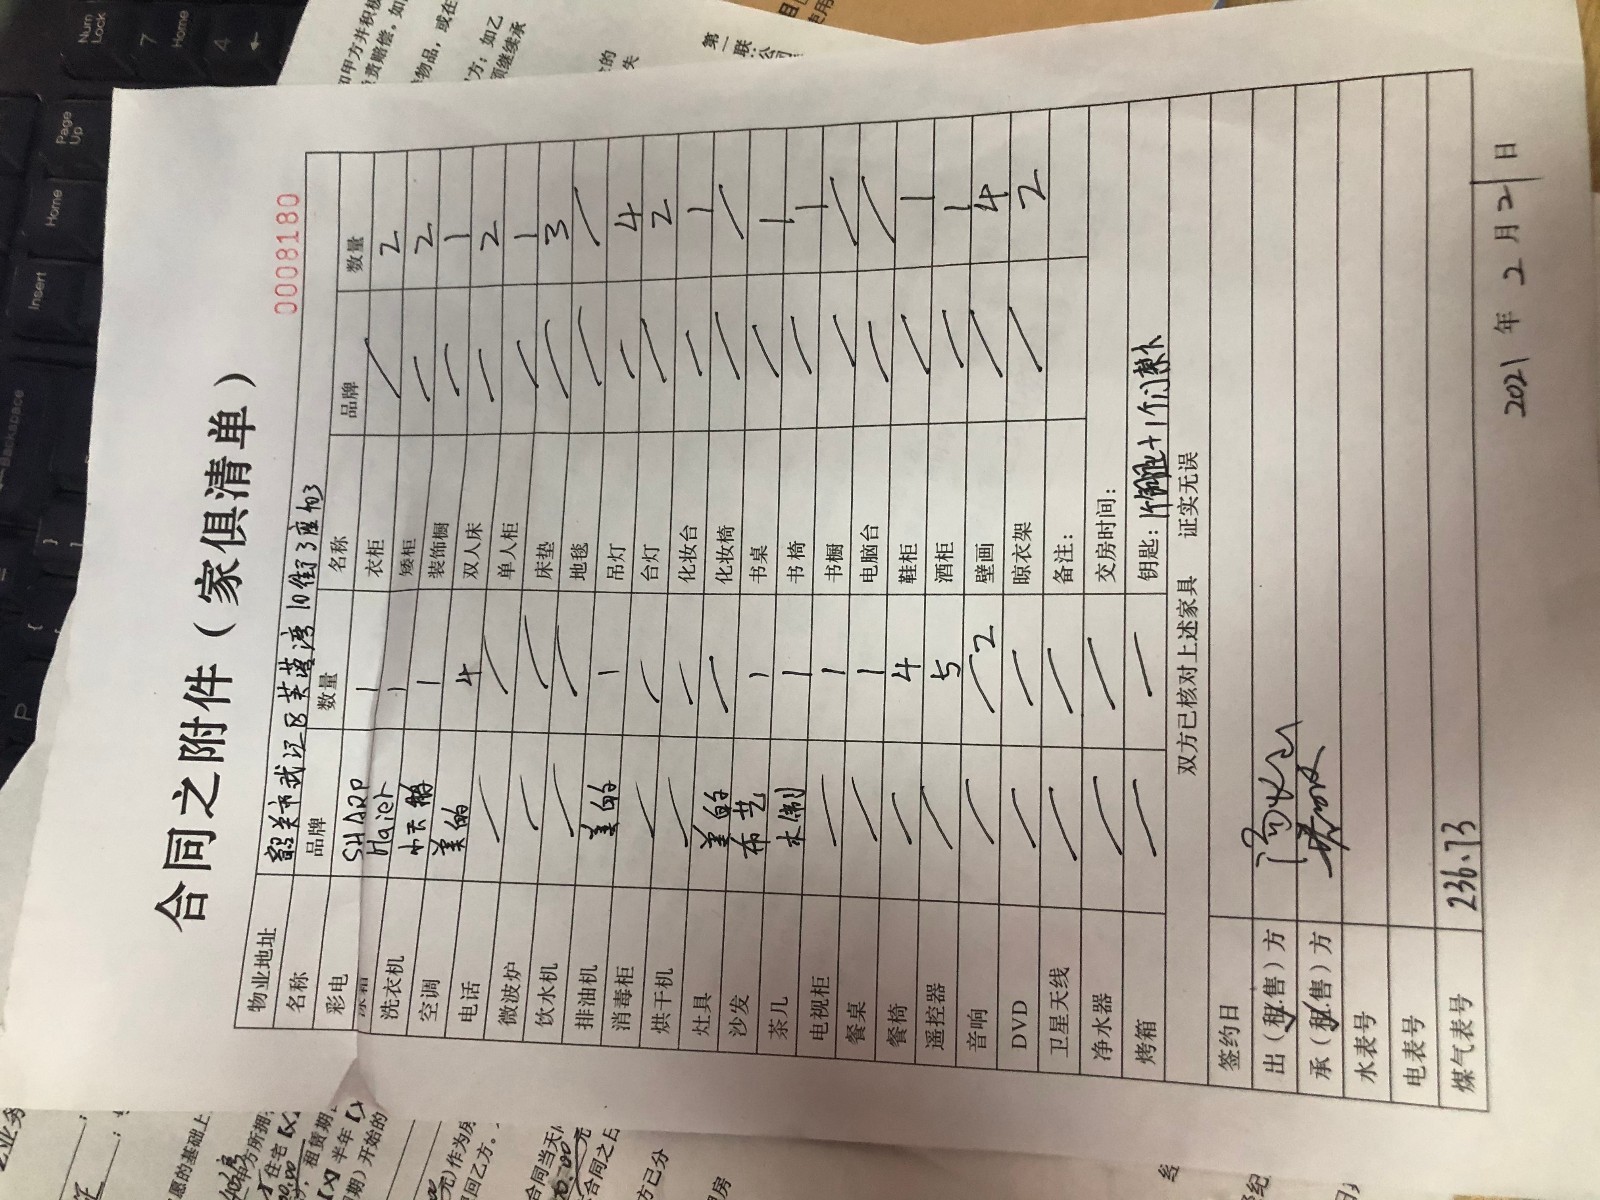 合同之附件（家俱清单）
0008180
物业地址 韶关市武江区芙蓉湾10街3座103
名称 品牌 数量 名称 品牌 数量
彩电 SHARP 1 衣柜 / 2
冰箱 Haier 1 矮柜 / 2
洗衣机 小天鹅 1 装饰橱 / 1
空调 美的 4 双人床 / 2
电话 / / 单人柜 / 1
微波炉 / / 床垫 / 3
饮水机 / / 地毯 / /
排油机 美的 1 吊灯 / 4
消毒柜 / / 台灯 / 2
烘干机 / / 化妆台 / 1
灶具 美的 / 化妆椅 / /
沙发 布艺 1 书桌 / 1
茶几 木制 1 书椅 / 1
电视柜 / 1 书橱 / /
餐桌 / 1 电脑台 / /
餐椅 / 4 鞋柜 / 1
遥控器 / 5 酒柜 / 1
音响 / 2 壁画 / 4
DVD / / 晾衣架 / 2
卫星天线 / / 备注：
净水器 / / 交房时间：
烤箱 / / 钥匙： +1个门禁卡
双方已核对上述家具 证实无误
签约日
出（租售）方
承（租售）方
水表号
电表号
煤气表号 236.73
2021 年 2 月 21 日
Num Lock
7 Home
4 ←
Page Up
Home
Insert
Backspace
P
第一联：公司